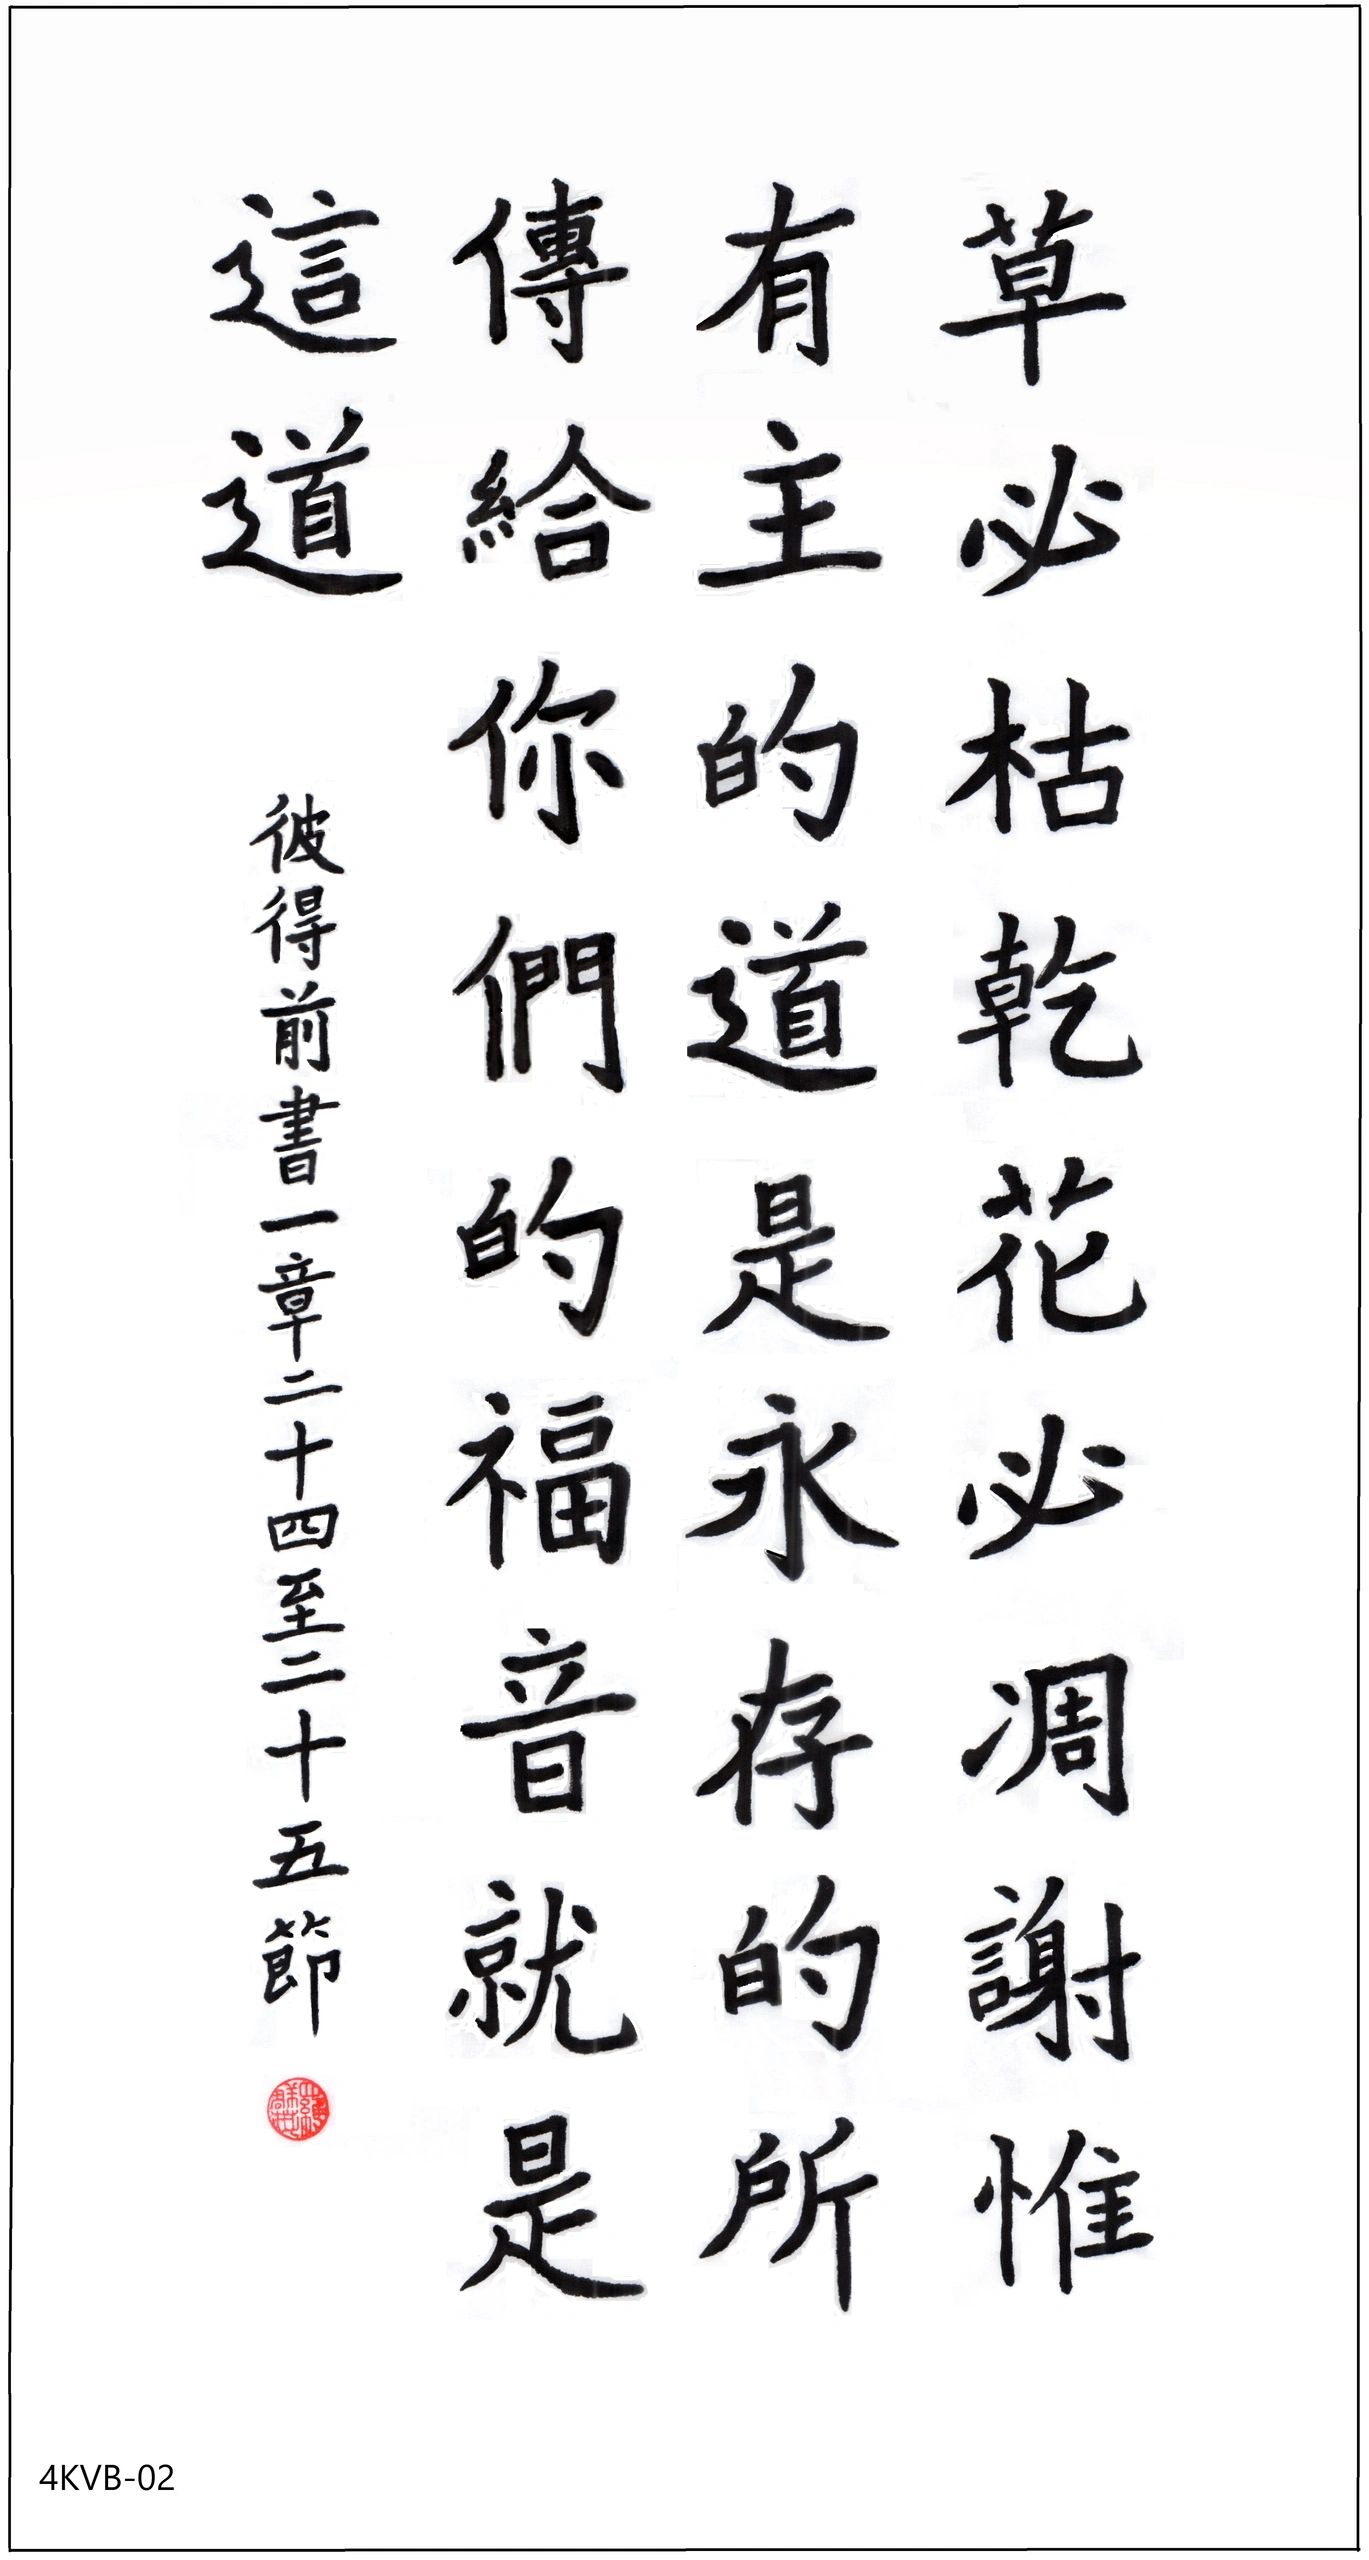 草必枯乾花必凋謝惟
有主的道是永存的所
傳給你們的福音就是
這道
彼得前書一章二十四至二十五節
4KVB-02